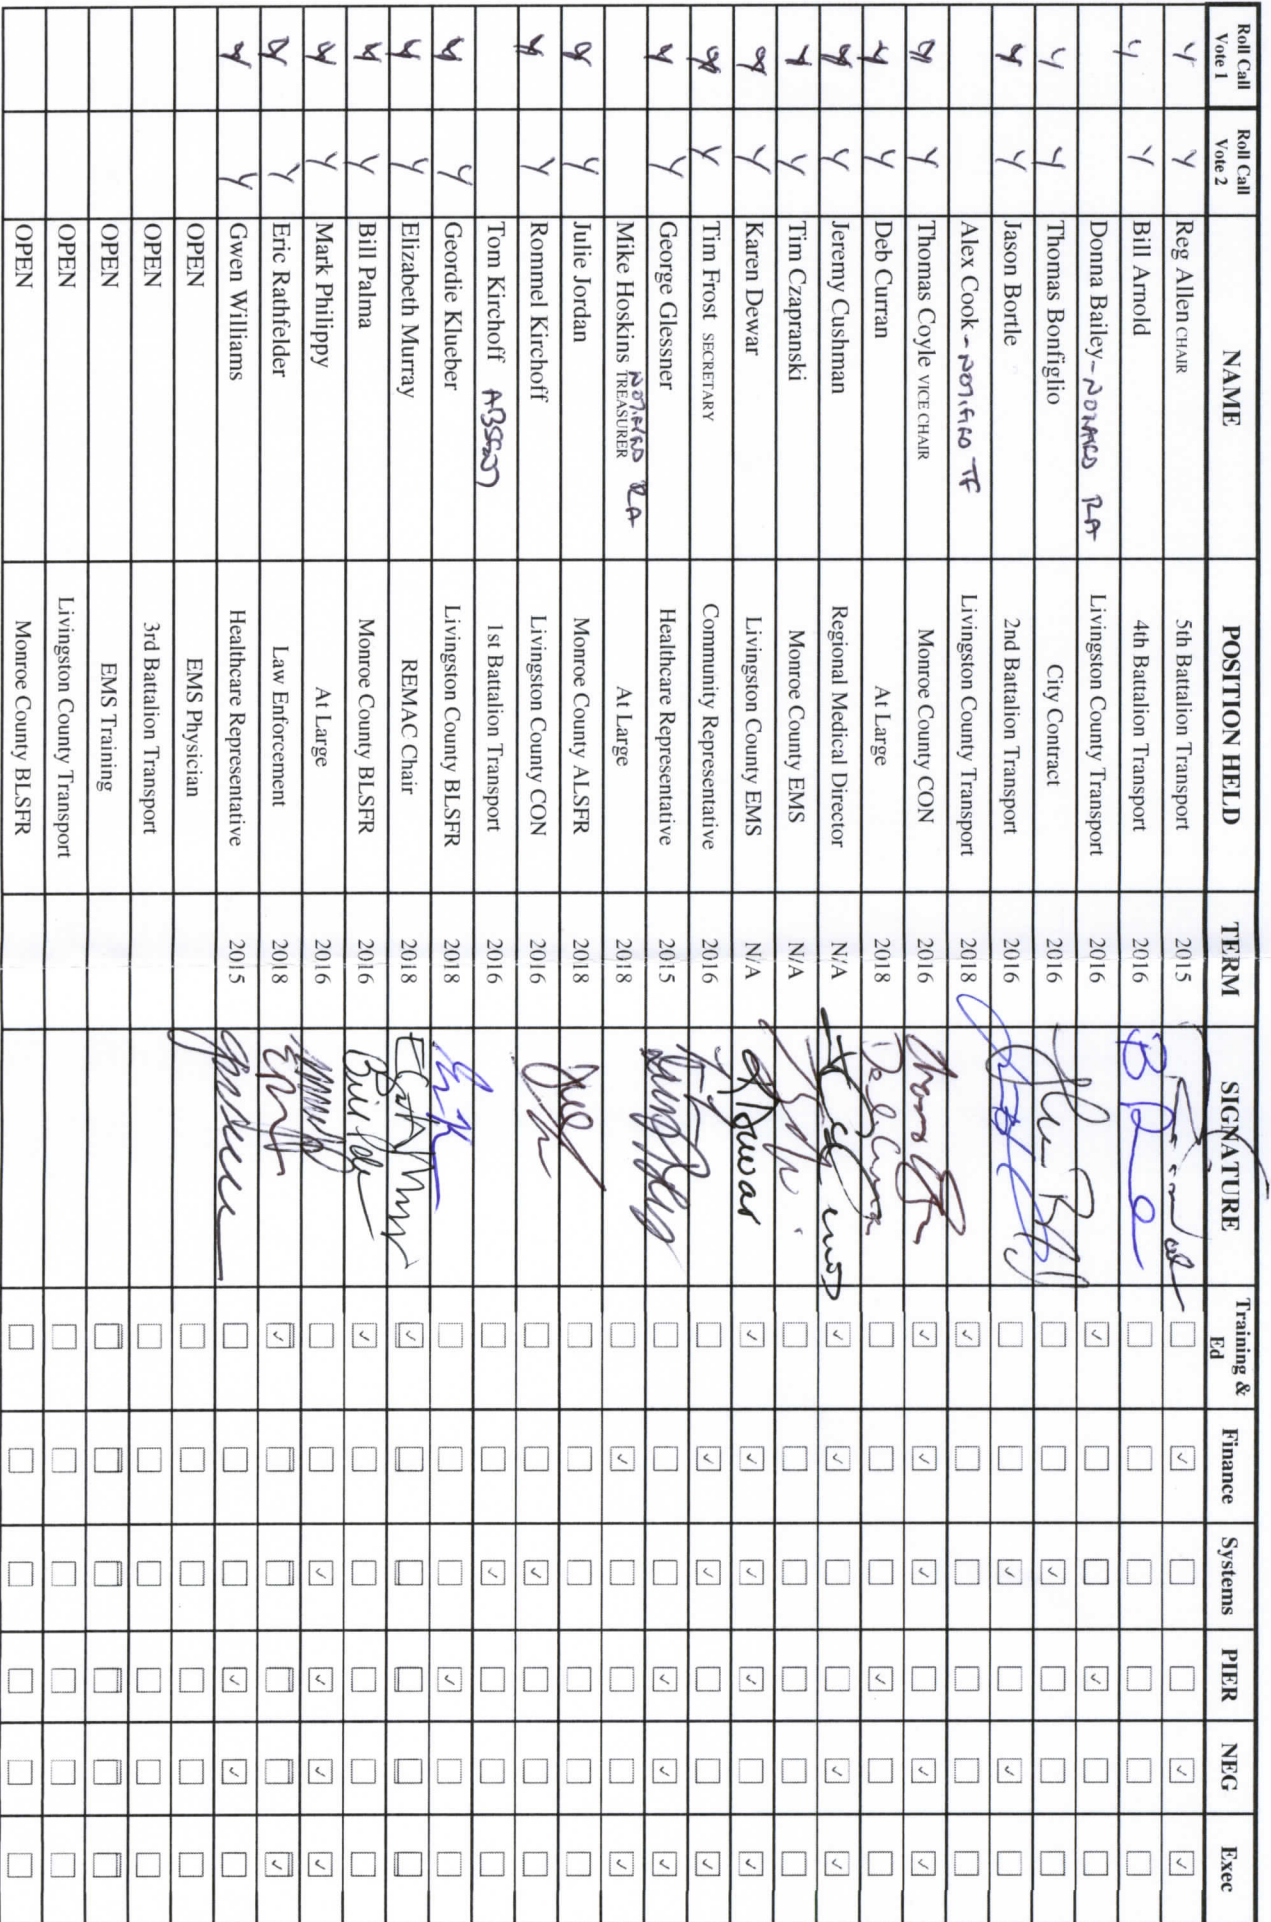 Roll Call Vote 1 Roll Call Vote 2 NAME POSITION HELD TERM SIGNATURE Training & Ed Finance Systems PIER NEG Exec
Y Y Reg Allen CHAIR 5th Battalion Transport 2015 ✓ ✓ ✓
Y Y Bill Arnold 4th Battalion Transport 2016
Donna Bailey - NOTIFIED RA Livingston County Transport 2016 ✓ ✓
Y Y Thomas Bonfiglio City Contract 2016 ✓
Y Y Jason Bortle 2nd Battalion Transport 2016 ✓ ✓
Alex Cook - NOTIFIED TF Livingston County Transport 2018 ✓
Y Y Thomas Coyle VICE CHAIR Monroe County CON 2016 ✓ ✓ ✓ ✓ ✓
Y Y Deb Curran At Large 2018 Deb Curran ✓
Y Y Jeremy Cushman Regional Medical Director N/A ✓ ✓ ✓ ✓
Y Y Tim Czapranski Monroe County EMS N/A
Y Y Karen Dewar Livingston County EMS N/A KDewar ✓ ✓ ✓ ✓ ✓
Y Y Tim Frost SECRETARY Community Representative 2016 ✓ ✓ ✓
Y Y George Glessner Healthcare Representative 2015 ✓ ✓ ✓
Mike Hoskins TREASURER NOTIFIED RA At Large 2018 ✓ ✓
Y Y Julie Jordan Monroe County ALSFR 2018
Y Y Rommel Kirchoff Livingston County CON 2016 ✓
Tom Kirchoff ABSENT 1st Battalion Transport 2016 ✓
Y Y Geordie Klueber Livingston County BLSFR 2018 ✓
Y Y Elizabeth Murray REMAC Chair 2018 ✓
Y Y Bill Palma Monroe County BLSFR 2016 ✓
Y Y Mark Philippy At Large 2016 ✓ ✓ ✓ ✓
Y Y Eric Rathfelder Law Enforcement 2018 ✓ ✓
Y Y Gwen Williams Healthcare Representative 2015 ✓ ✓
OPEN EMS Physician
OPEN 3rd Battalion Transport
OPEN EMS Training
OPEN Livingston County Transport
OPEN Monroe County BLSFR